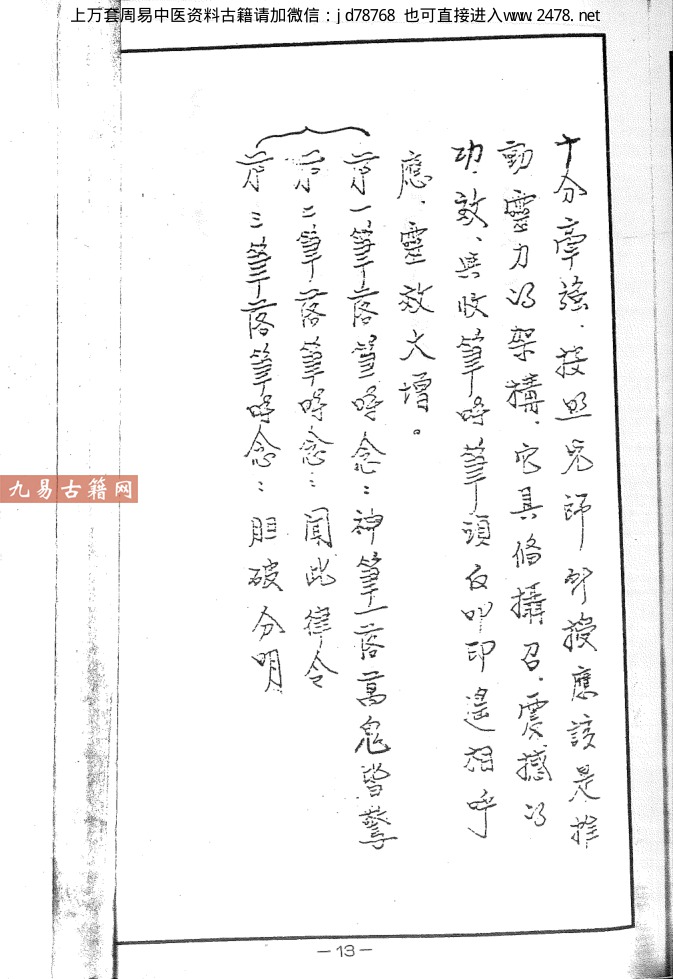 上万套周易中医资料古籍请加微信：jd78768 也可直接进入www.2478.net
十分牽強．按照先師所授應該是推
動靈力的架構．它具俻攝召．震撼的
功．效．與收筆時筆頭反叩印遙相呼
應．靈效大增。
第一筆落筆時念：神筆一落萬鬼皆驚
第二筆落筆時念：聞此律令
第三筆落筆時念：胆破分明
九易古籍网
－13－